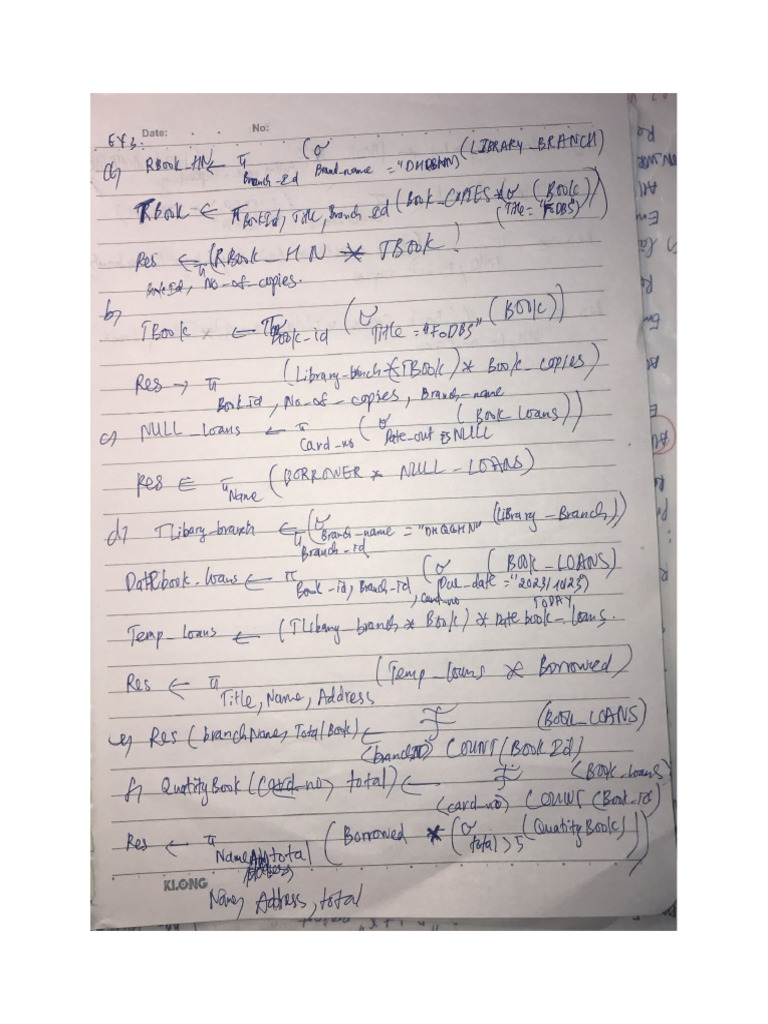 Date: . . No:
EX 3:
a, RBook_HN ← π Branch_Id (σ Branch_name = "DHQGHN" (LIBRARY_BRANCH)
TRBook ← π BookId, Title, Branch_ed (Book_COPIES * σ (Title = "FoDBS") (Book))
Res ← π (RBook_HN * TBook)
BookId, No_of_copies.
b, TBook ← π Book_id (σ Title = "FoDBS" (BOOK))
Res → π (Library_branch * (TBook) * Book_copies)
Book Id, No_of_copies, Branch_name
c, NULL_loans ← π Card_no (σ Date_out is NULL (Book_Loans))
Res ∈ π Name (BORROWER * NULL_LOANS)
d, TLibary_branch ← π Branch_id (σ Branch_name = "DHQGHN" (Library_Branch))
book_loans ← π Book_id, Branch_Id, Card_no (σ Due_date = "2023/10/23" (BOOK_LOANS)
TODAY
Temp_Loans ← (TLibary_branch * Book) * Date book_loans.
Res ← π Title, Name, Address (Temp_loans * Borrowed)
e, Res (branchName, Total Book) ← (branchID) F COUNT(Book Id) (BOOK_LOANS)
f, QuatityBook (Card_no, total) ← (card_no) F COUNT (Book_Id) (Book_loans)
Res ← π Name total (Borrowed * (σ total > 5 (QuatityBook)))
KLONG
Name, Address, total